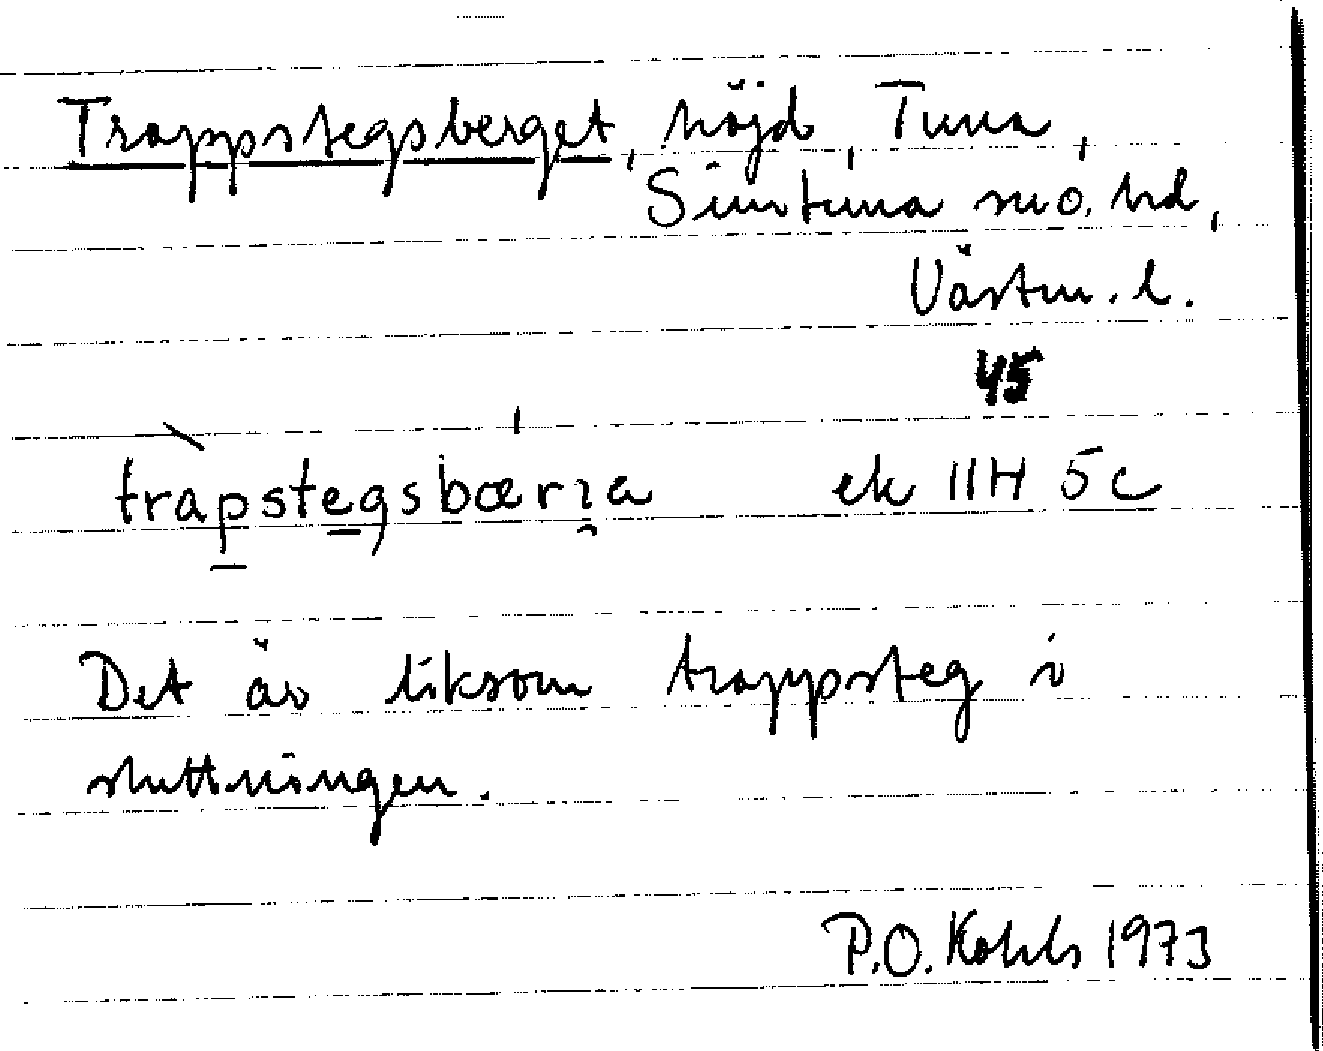 Trappstegsberget, höjd, Tuna,
Simtuna sno. hd,
Västm. l.
45
trapstegsbærɿa ek 11H 5c
Det är liksom trappsteg i
sluttningen.
P.O. Kohls 1973